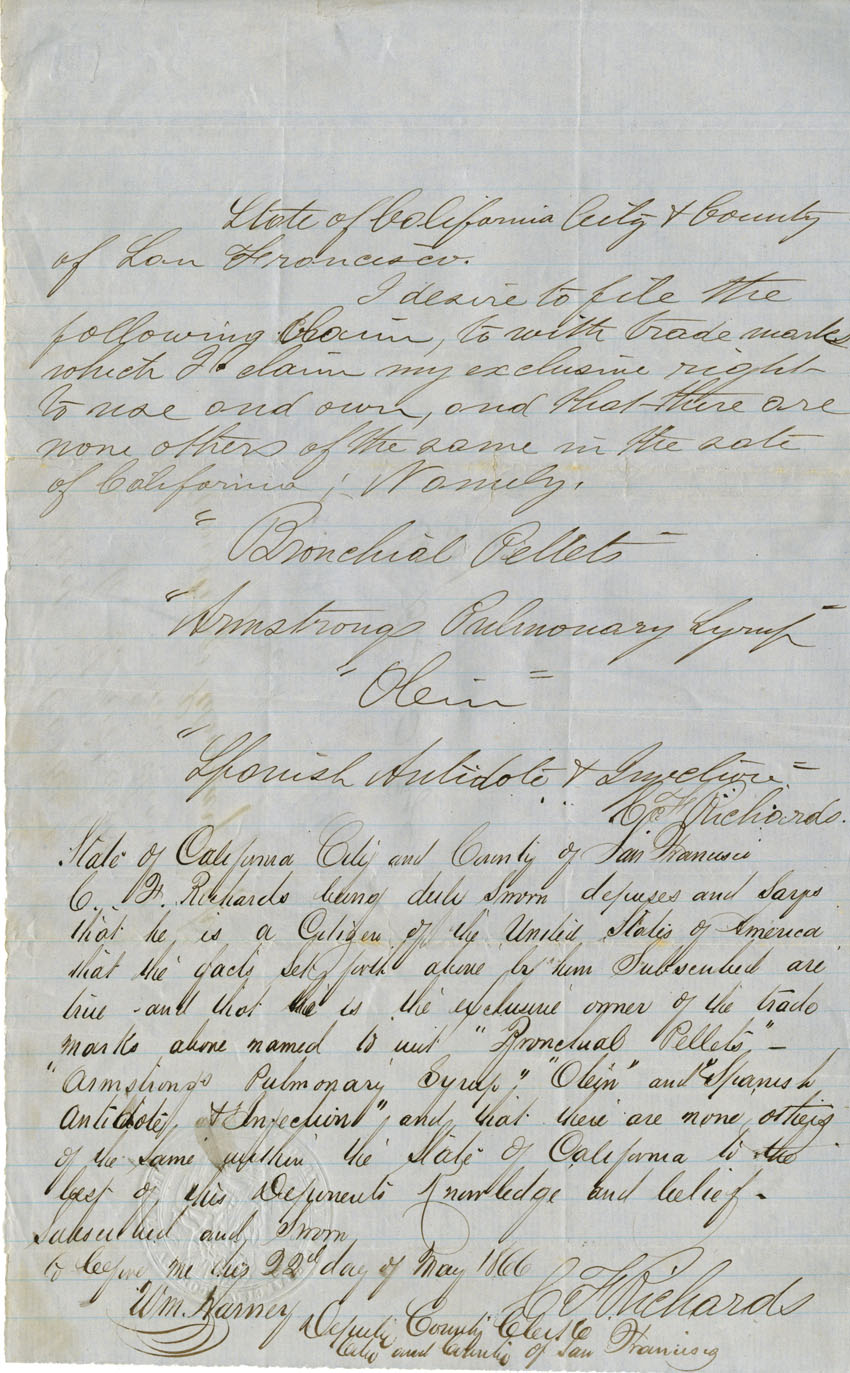 State of California City & County
of San Francisco.
I desire to file the
following Claim, to with trade marks
which I claim my exclusive right
to use and own, and that there are
none others of the same in the sate
of California; Namely.
"Bronchial Pellets"
"Armstrongs Pulmonary Syrup"
"Olein"
"Spanish Antidote & Injection"
C F Richards.
State of California City and County of San Francisco
C. F. Richards being duly sworn deposes and Says
that he is a Citizen of the United States of America
that the facts set forth above by him Subscribed are
true and that he is the exclusive owner of the trade
marks above named to wit "Bronchial Pellets," –
"Armstrong's Pulmonary Syrup", "Olein" and "Spanish
Antidote & Injection", and that there are none others
of the same within the State of California to the
best of this Deponents Knowledge and belief –
Subscribed and Sworn
to before me this 22d day of May 1866
C F Richards
Wm. Harney
Deputy County Clerk
City and County of San Francisco